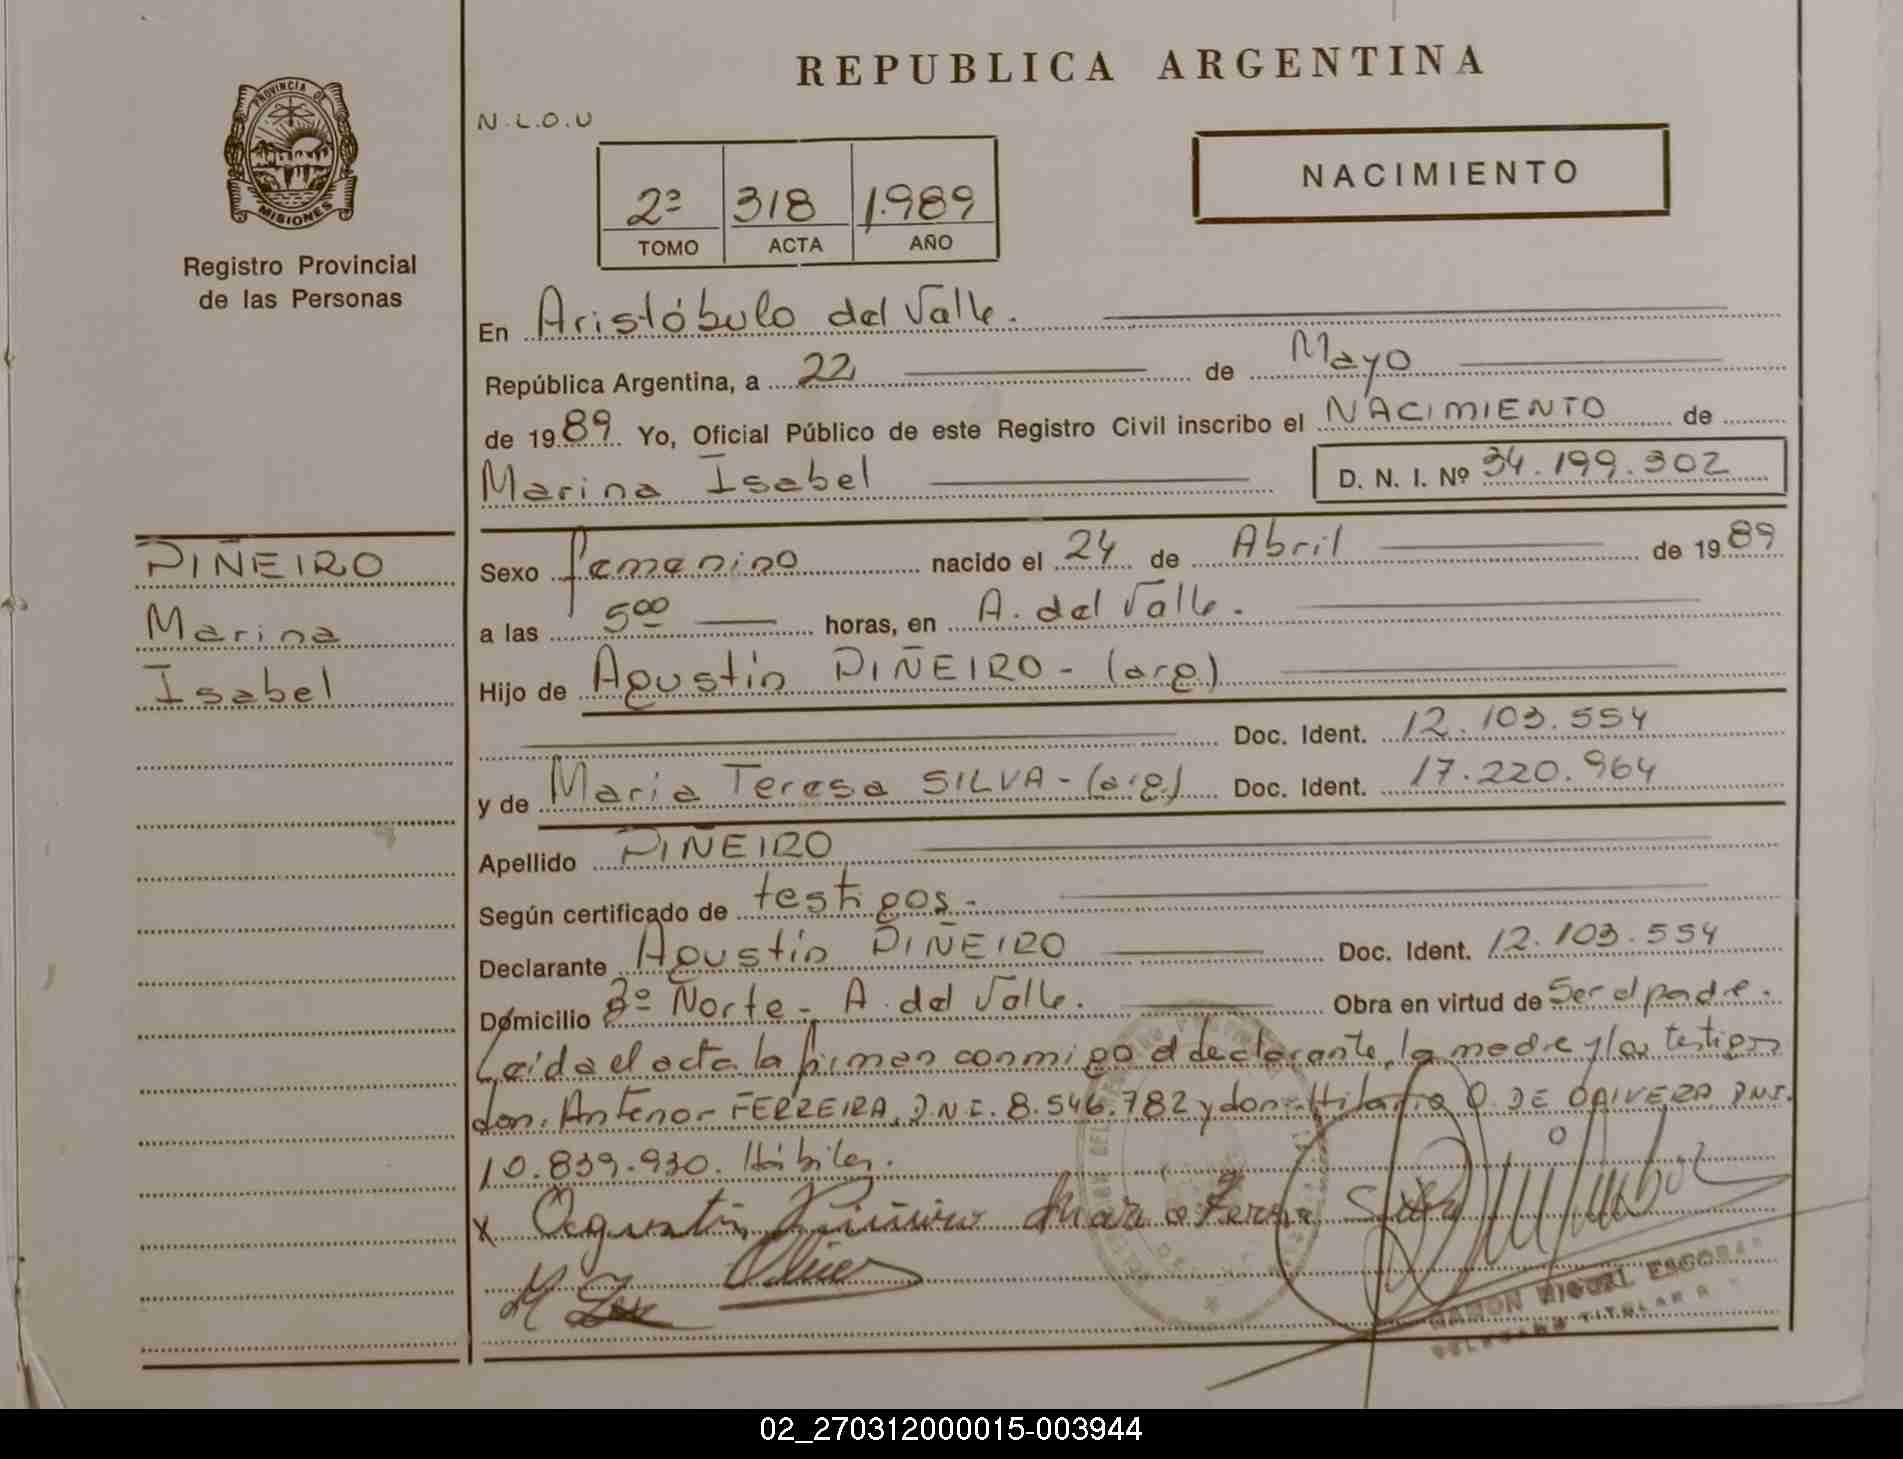 REPUBLICA ARGENTINA
PROVINCIA DE
MISIONES
Registro Provincial
de las Personas
N.L.O.U
2º 318 1.989
TOMO ACTA AÑO
NACIMIENTO
En Aristóbulo del Valle.
República Argentina, a 22 de Mayo
de 1989 Yo, Oficial Público de este Registro Civil inscribo el NACIMIENTO de
Marina Isabel D. N. I. Nº 34.199.302
PIÑEIRO
Marina
Isabel
Sexo femenino nacido el 24 de Abril de 1989
a las 5 00 horas, en A. del Valle.
Hijo de Agustín PIÑEIRO - (arg)
Doc. Ident. 12.103.554
y de Maria Teresa SILVA - (arg) Doc. Ident. 17.220.964
Apellido PIÑEIRO
Según certificado de testigos.-
Declarante Agustín PIÑEIRO Doc. Ident. 12.103.554
Domicilio Norte - A. del Valle. Obra en virtud de Ser el padre.
Leída el acta la firman conmigo el declarante, la madre y los testigos
don. Antenor FERREIRA, D.N.I. 8.546.782 y don Hilario O. DE OLIVERA DNI.
10.839.930. Hábiles.
x Agustin Piñeiro Maria Teresa Silva
RAMON MIGUEL ESCOBAR
DELEGADO TITULAR
02_270312000015-003944